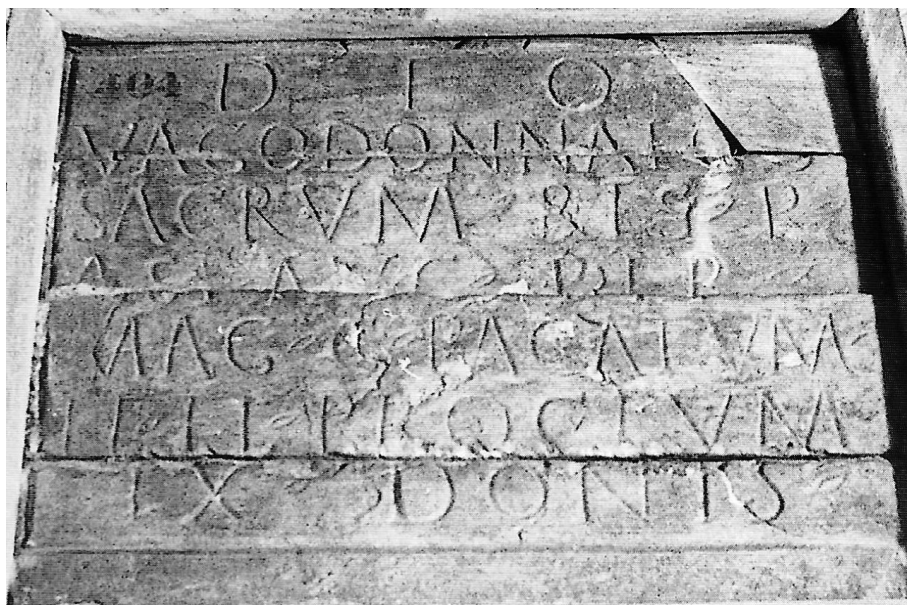 404
DEO
VAGODONNAEGO
SACRVM RES P
AST AVG PER
MAG G PACATVM
ET FL PROCVLVM
EX DONIS